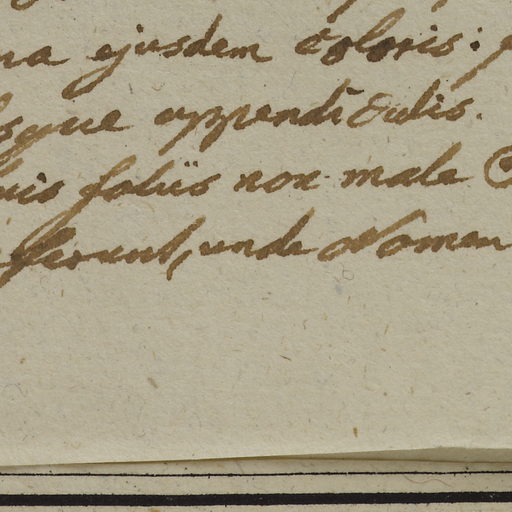 na ejusdem coloris:
sque appendiculis.
uis foliis non male C
ferunt, unde Nomen